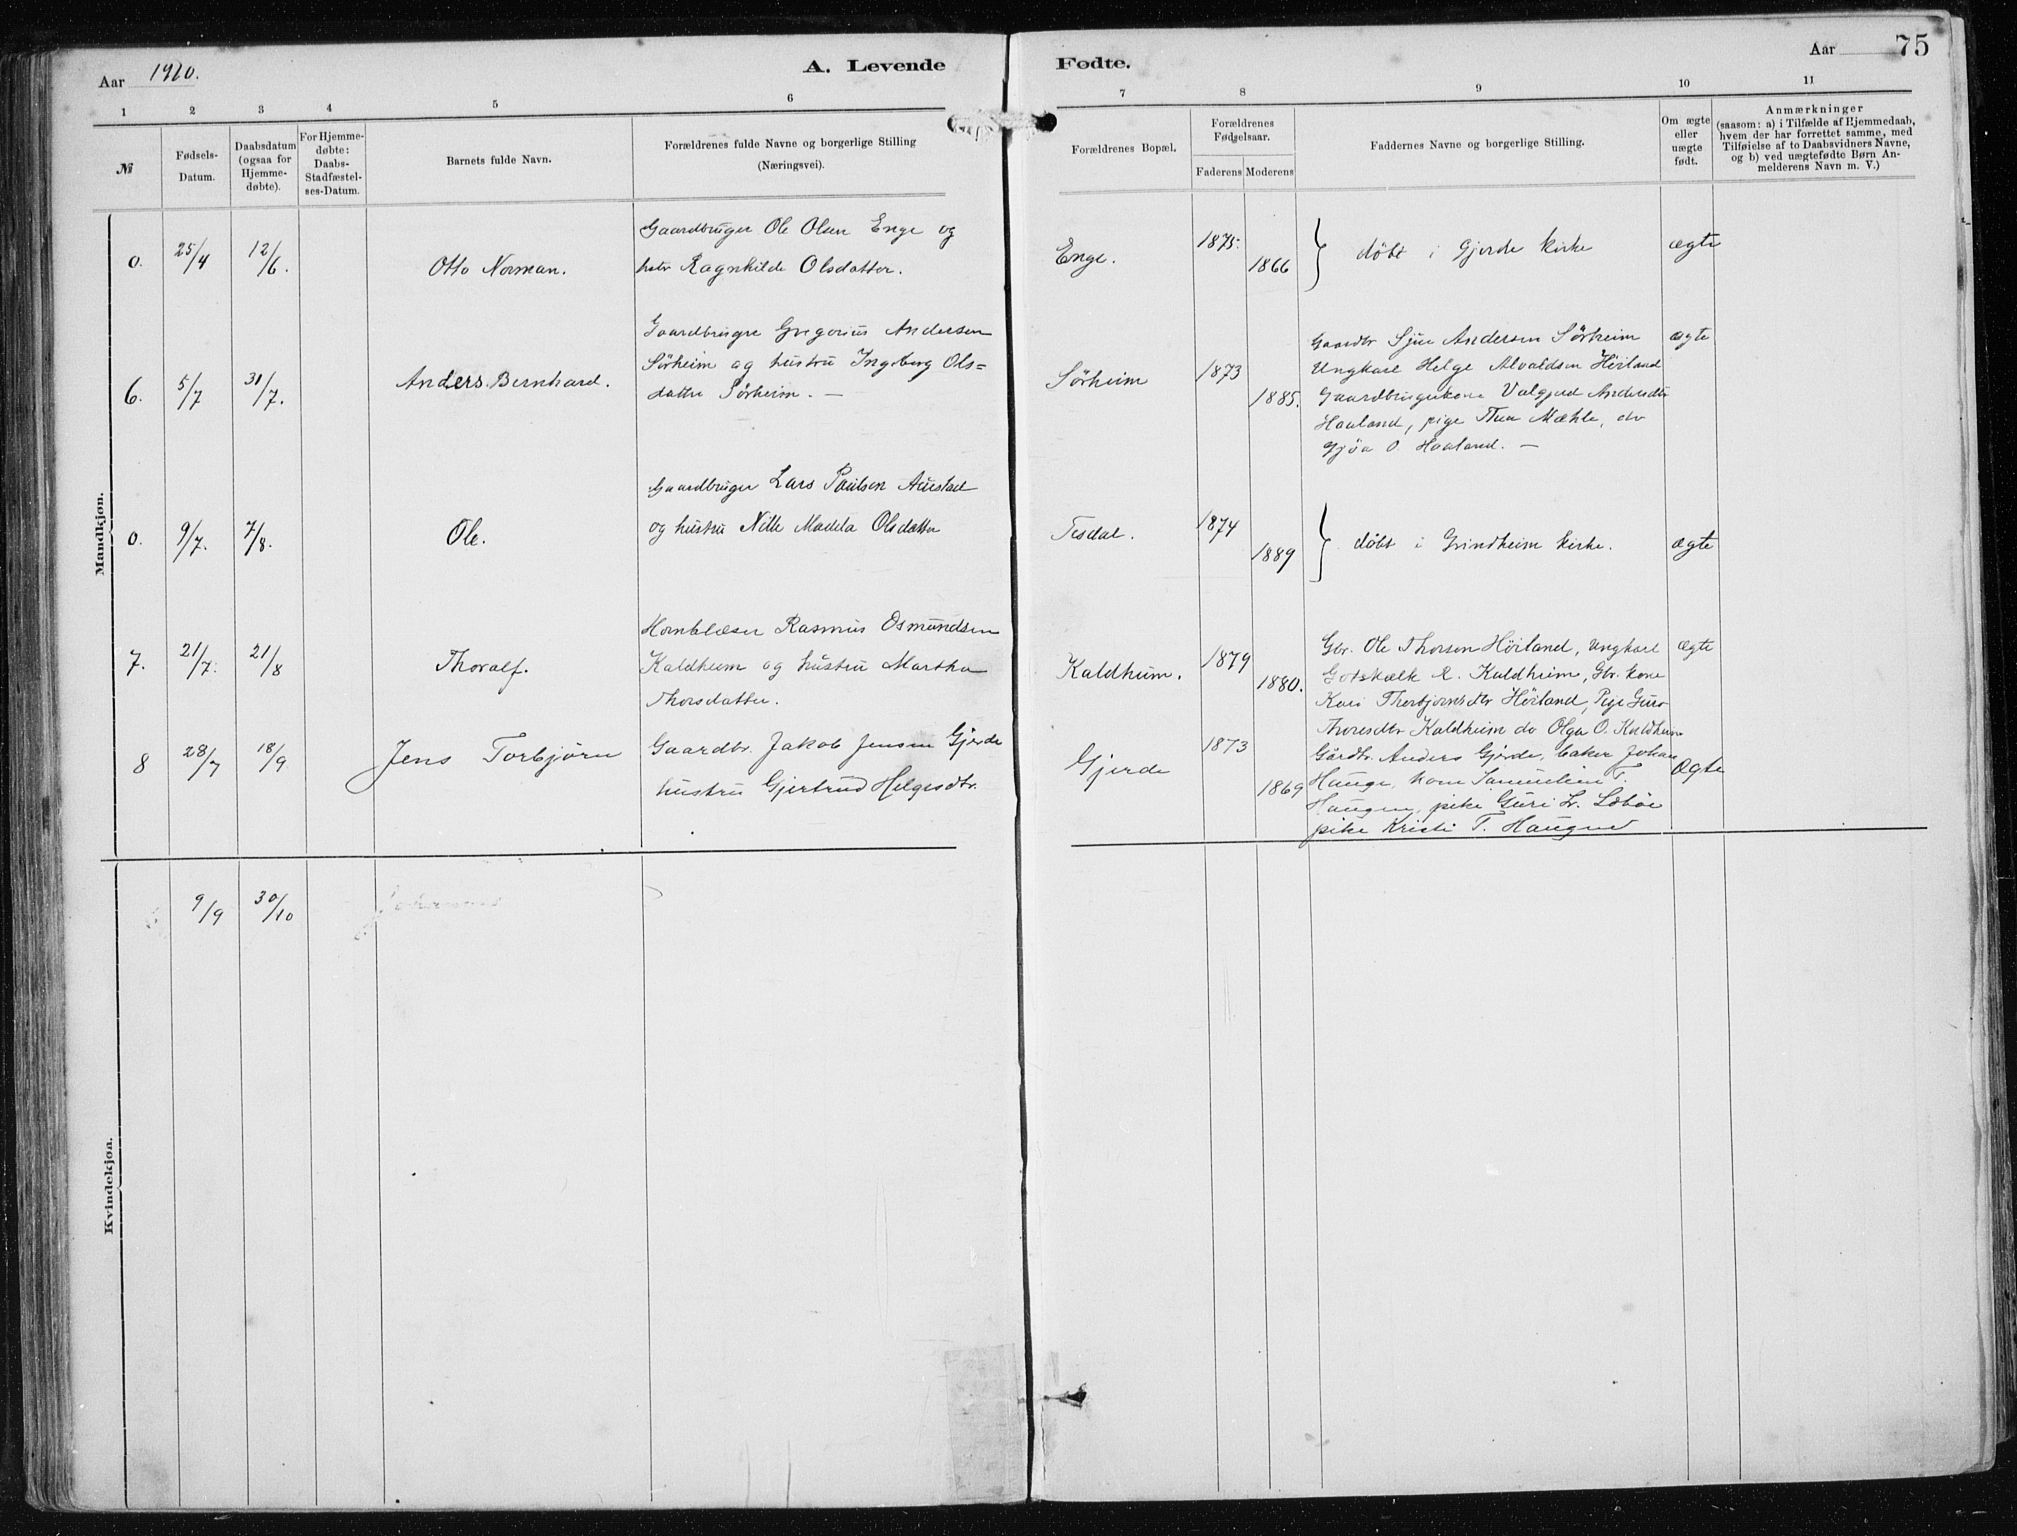 Aar 1910.
A. Levende
Fødte.
Aar
75
1 2 3 4 5 6 7 8 9 10 11
№
Fødsels-
Datum.
Daabsdatum
(ogsaa for
Hjemme-
døbte).
For Hjemme-
døbte:
Daabs-
Stadfæstel-
ses-Datum.
Barnets fulde Navn.
Forældrenes fulde Navne og borgerlige Stilling
(Næringsvei).
Forældrenes Bopæl.
Forældrenes
Fødselsaar.
Faderens Moderens
Faddernes Navne og borgerlige Stilling.
Om ægte
eller
uægte
født.
Anmærkninger
(saasom: a) i Tilfælde af Hjemmedaab,
hvem der har forrettet samme, med
Tilføielse af to Daabsvidners Navne,
og b) ved uægtefødte Børn An-
melderens Navn m. V.)
Mandkjøn.
0. 25/4 12/6. Otto Norman.
Gaardbruger Ole Olsen Enge og
hstr Ragnhilde Olsdatter.
Enge. 1875. 1866 } døbt i Gjerde kirke ægte
6. 5/7 31/7. Anders Bernhard.
Gaardbrugre Gregorius Andersen
Sørheim og hustru Ingeborg Ols=
datter Sørheim. —
Sørheim 1873 1885.
Gaardbr Sjur Andersen Sørheim ægte
Ungkarl Helge Alvaldsen Höiland
Gaardbrugerkone Valgjerd Andersdtr
Haaland, pige Thea Mæhle, do
Gjøa O. Haaland. —
0. 9/7. 7/8. Ole.
Gaardbruger Lars Paulsen Austad
og hustru Nille Madela Olsdatter
Tesdal. 1874 1889 } døbt i Grindheim kirke. ægte
7. 21/7. 21/8 Thoralf.
Hornblæser Rasmus Osmundsen
Kaldheim og hustru Martha
Thorsdatter.
Kaldheim. 1879 1880.
Gbr. Ole Thorsen Höiland, ungkarl ægte
Gotskalk R. Kaldheim, Gbr. kone
Kari Thorbjørnsdtr Höiland, Pige Guro
Thoresdtr Kaldheim do Olga O. Kaldheim
8 28/7 18/9 Jens Torbjørn
Gaardbr. Jakob Jensen Gjerde
hustru Gjertrud Helgesdtr.
Gjerde 1873 1869
Gårdbr. Anders Gjerde, baker Johan
Hauge, kone Samueline T. ægte
Haugen, pike Guri Lr. Lebøe
pike Kristi T. Haugen
Kvindekjøn.
9/9 30/10